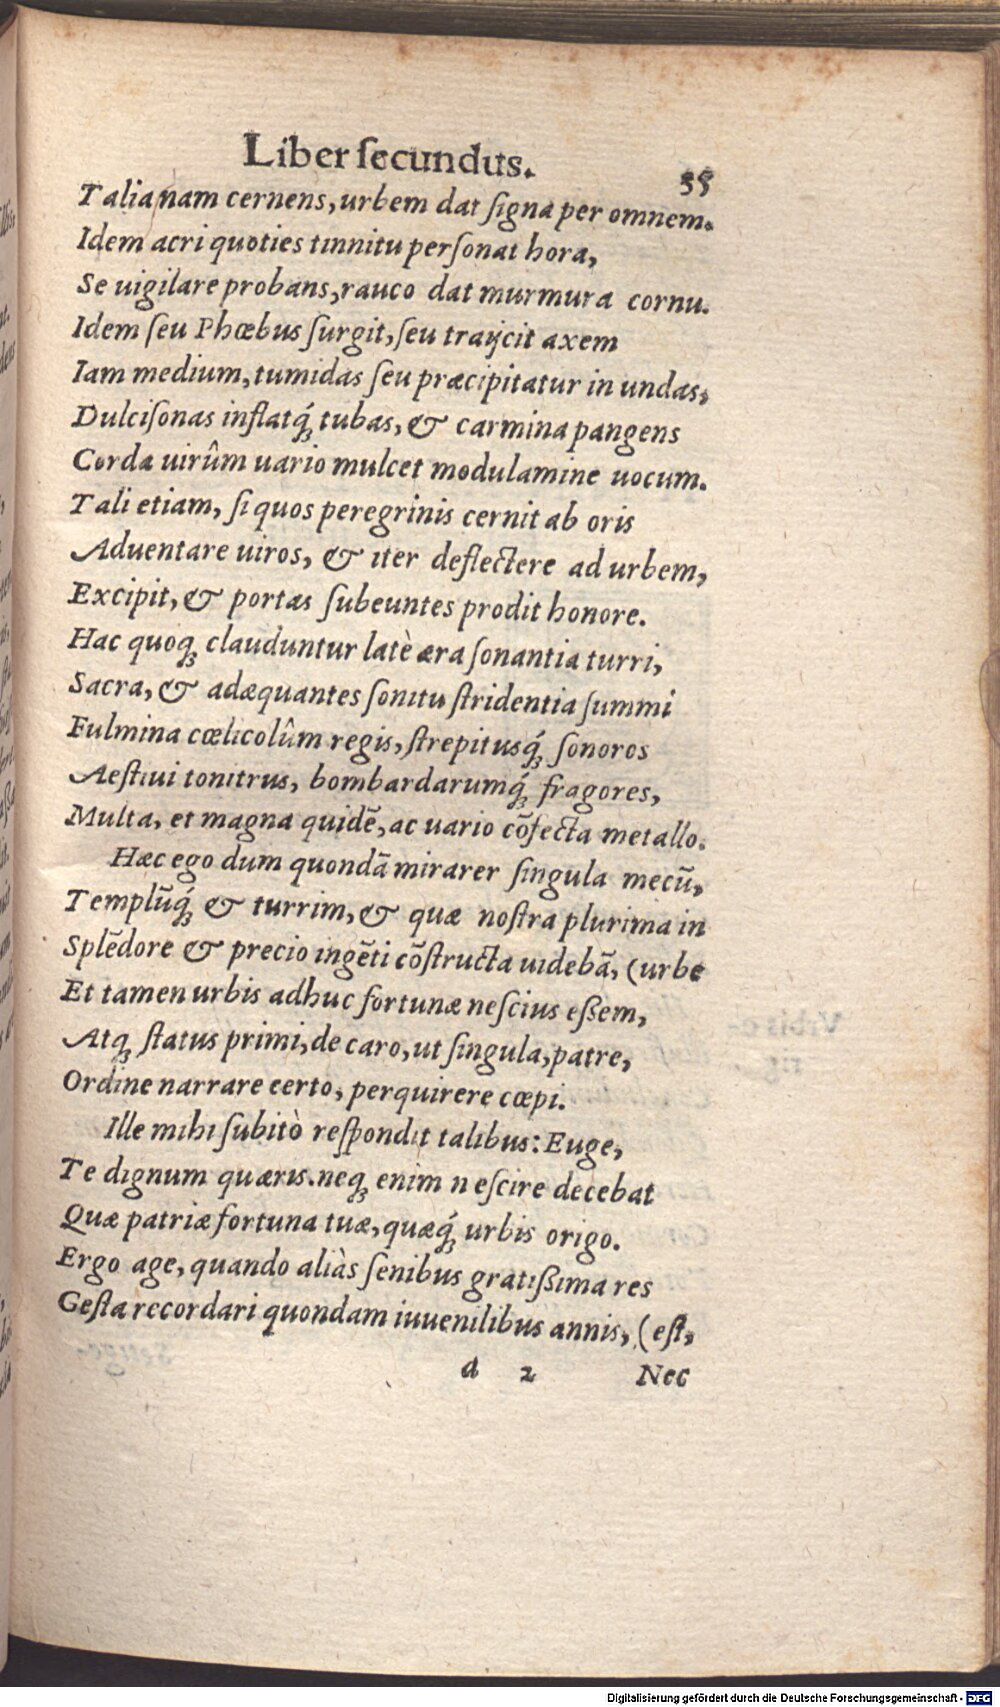 Liber ſecundus. 55
Talia nam cernens, urbem dat ſigna per omnem.
Idem acri quoties tinnitu perſonat hora,
Se uigilare probans, rauco dat murmura cornu.
Idem ſeu Phœbus ſurgit, ſeu traijcit axem
Iam medium, tumidas ſeu præcipitatur in undas,
Dulciſonas inflatq́ꝫ tubas, & carmina pangens
Corda uirûm uario mulcet modulamine uocum.
Tali etiam, ſi quos peregrinis cernit ab oris
Aduentare uiros, & iter deflectere ad urbem,
Excipit, & portas ſubeuntes prodit honore.
Hac quoqꝫ clauduntur latè æra ſonantia turri,
Sacra, & adæquantes ſonitu ſtridentia ſummi
Fulmina cœlicolûm regis, ſtrepitusq́ꝫ ſonoros
Aeſtiui tonitrus, bombardarumq́ꝫ fragores,
Multa, et magna quidẽ, ac uario cõfecta metallo.
Hæc ego dum quondã mirarer ſingula mecũ,
Templũq́ꝫ & turrim, & quæ noſtra plurima in
Splẽdore & precio ingẽti cõſtructa uidebã, (urbe
Et tamen urbis adhuc fortunæ neſcius eßem,
Atqꝫ ſtatus primi, de caro, ut ſingula, patre,
Ordine narrare certo, perquirere cœpi.
Ille mihi ſubitò reſpondit talibus: Euge,
Te dignum quæris. neqꝫ enim neſcire decebat
Quæ patriæ fortuna tuæ, quæq́ꝫ urbis origo.
Ergo age, quando aliàs ſenibus gratißima res
Geſta recordari quondam iuuenilibus annis, (eſt,
d 2 Nec
Digitalisierung gefördert durch die Deutsche Forschungsgemeinschaft - DFG